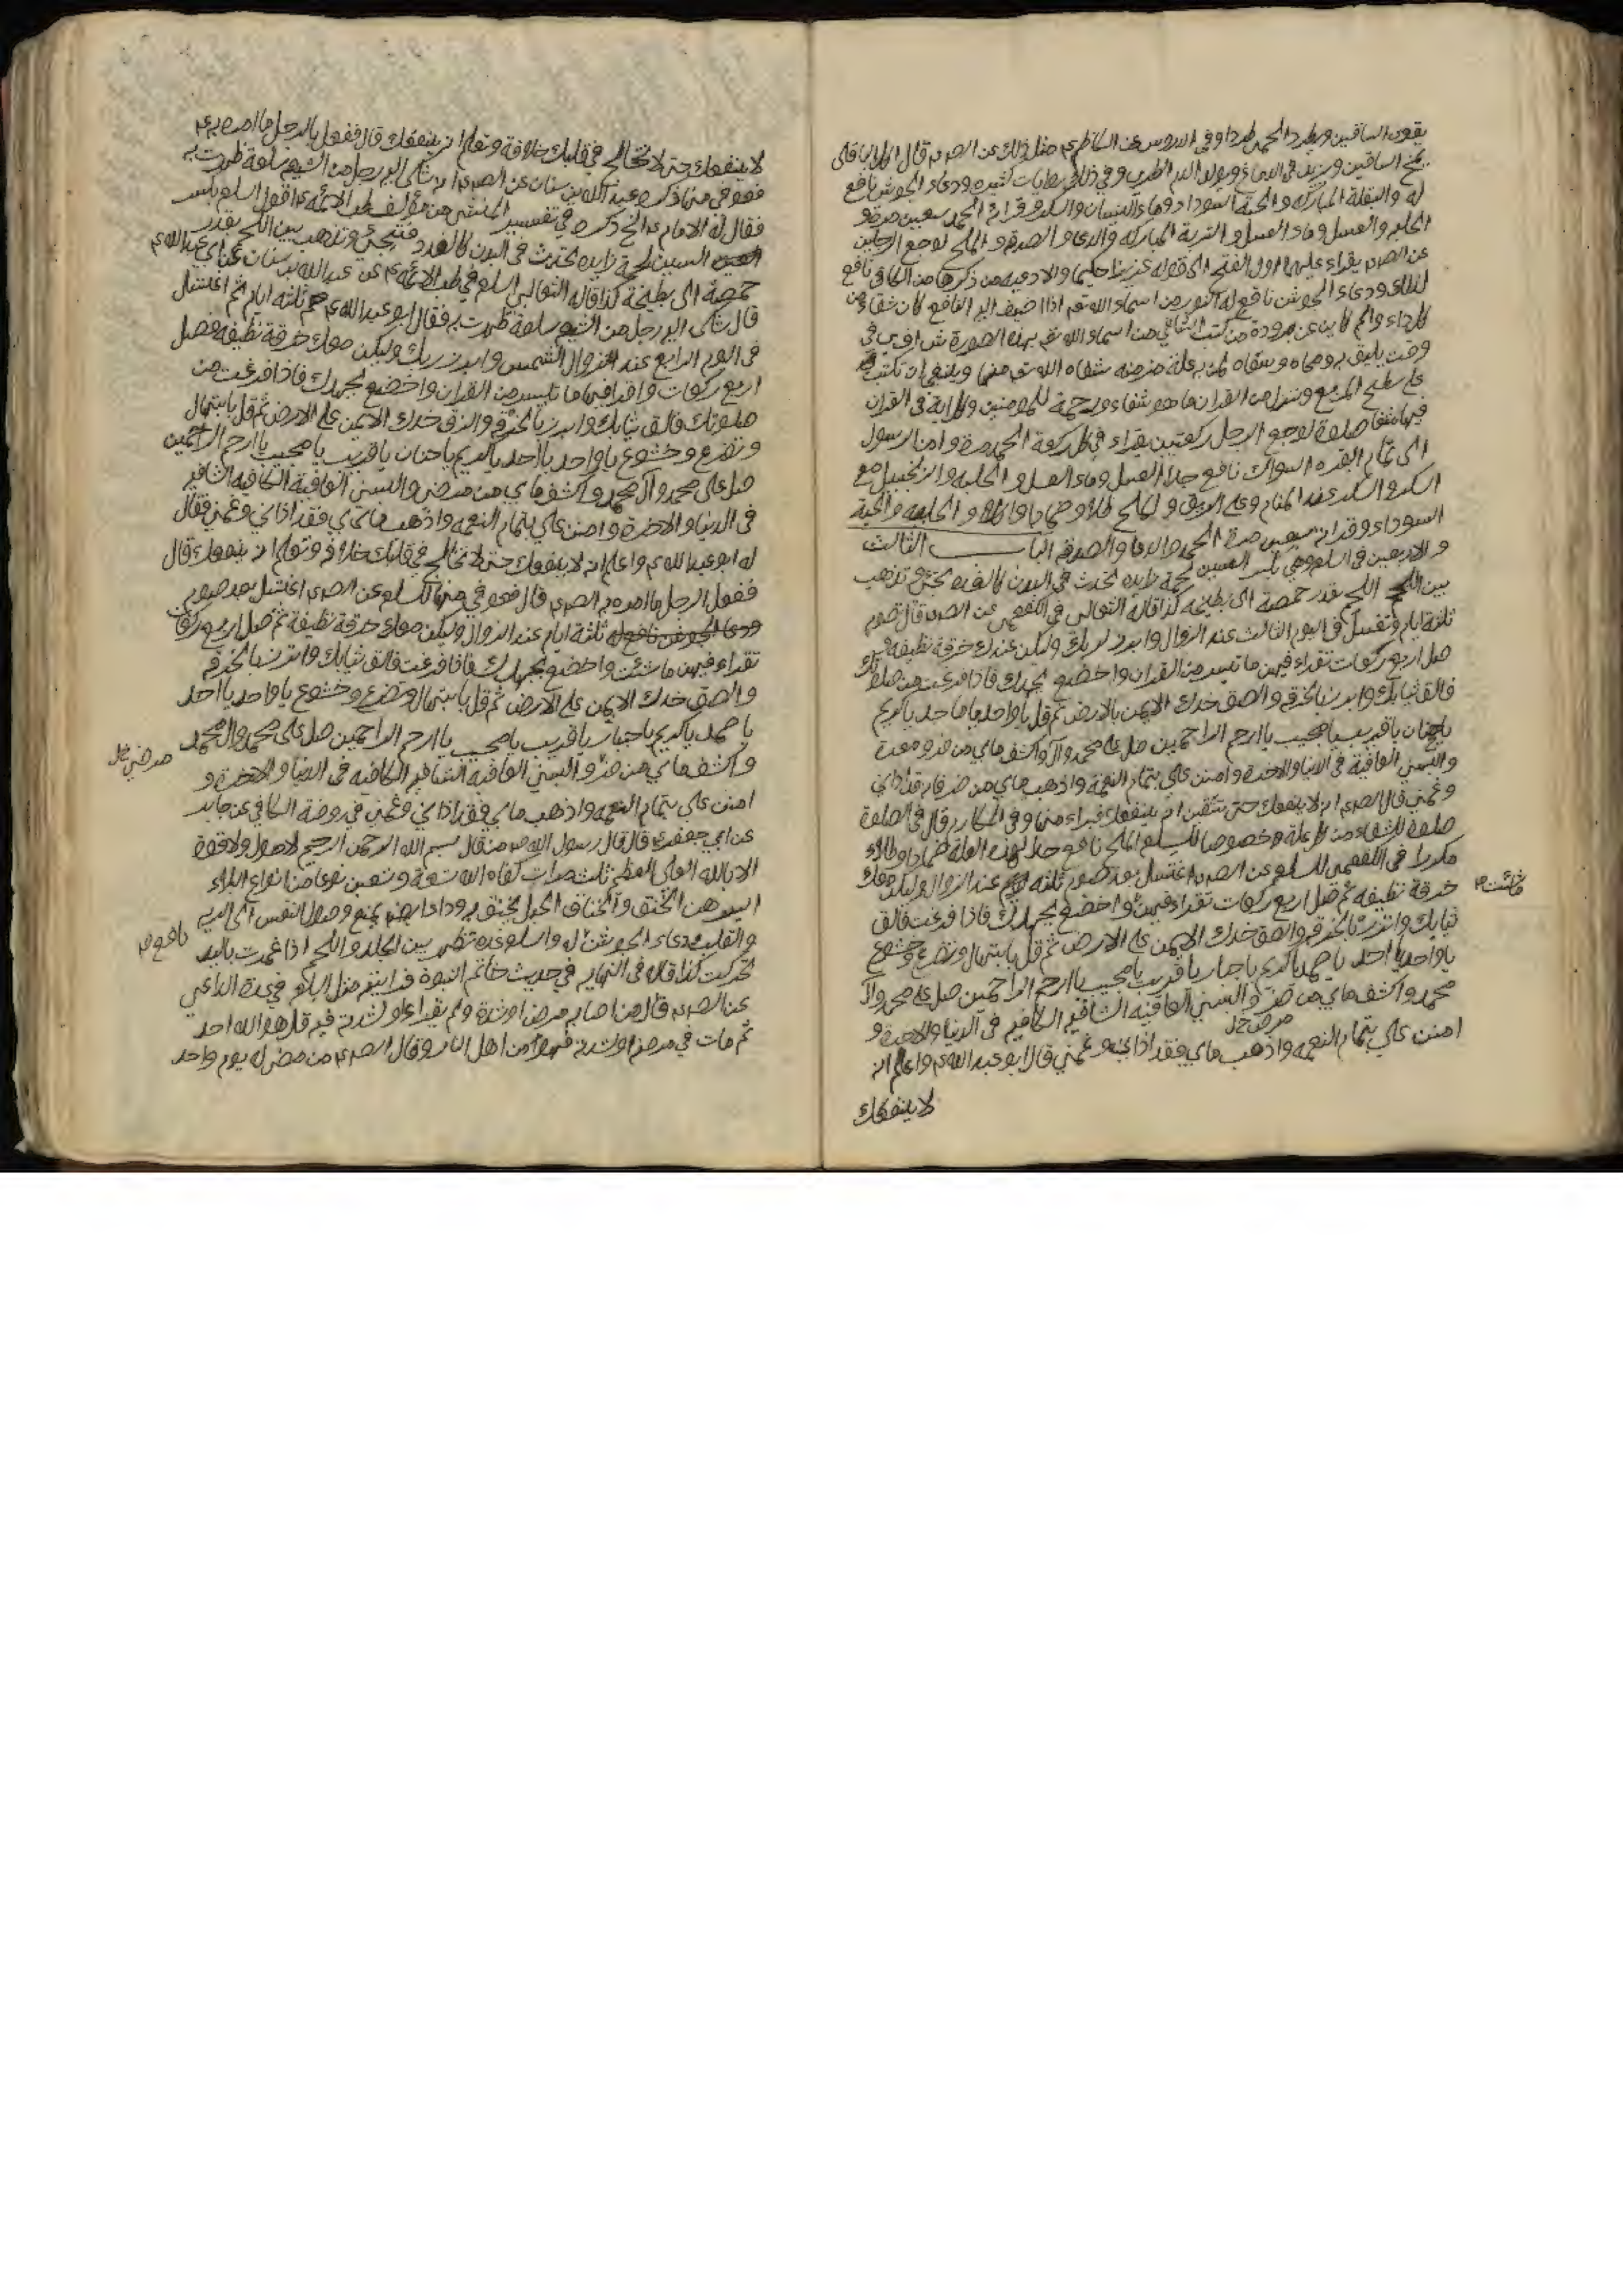 يقوي الساقين ويطرد الحمى طردا وفي الدروس عن الكاظم ع مثل ذلك عن الصم قال اكل الباقلى
يمخ الساقين ويزيد في الدماغ ويولد الدم الطري وفي ذلك روايات كثيره ودعاء الجوشن نافع
له والبقلة المباركه والحبة السوداء وماء النيسان والسكر وقراءة الحمد سبعين مرة و
الحلبه والعسل وماء العسل والتربة المباركه والدعاء والصدقة والملح لوجع الرجلين
عن الصم يقراء عليها اول الفتح الى قوله عزيزا حكيما والادعيه من ذكرها من الكافي نافع
لذلك ودعاء الجوشن نافع له النور من اسماء الله تعم اذا اضيف اليه النافع كان شفاء من
كل داء والم كاين عن برودة من كتب الشافي من اسماء الله تعم بهذه الصورة ش ا ف ي في
وقت يليق به ومحاه وسقاه لمن به علة مزمنه شفاه الله تع منها وينبغي ان تكتب
على سطح المربع وننزل من القران ما هو شفاء ورحمة للمومنين وكل اية في القران
فيها شفا صلوة لوجع الرجل ركعتين يقراء في كل ركعة الحمد مرة وامن الرسول
الى تمام البقره السواك نافع جدا العسل وماء العسل والحلبه والزنجبيل مع
السكر والسكر عند المنام وعلى الريق والملح طلاء وضمادا واكلا والحلبه والحبة
السوداء وقراءة سبعين مرة الحمد والدعا والصدقه البـاب الثالث
والاربعين في السلع وهي بكسر السين لحمة زايده تحدث في البدن كالغده تجئ وتذهب
بين اللحم بقدر حمصة الى بطيخه كذا قاله الثعالبي في الكفعمي عن الصم قال صوم
ثلثة ايام وتغسل في اليوم الثالث عند الزوال وابرز لربك وليكن عندك خرقة نظيفه و
صل اربع ركعات تقراء فيهن ما تيسر من القران واخضع بجهدك فاذا فرغت من صلوتك
فالق ثيابك واتزر بالخرقه والصق خدك الايمن بالارض ثم قل يا واحد يا ماجد يا كريم
يا حنان يا قريب يا مجيب يا ارحم الراحمين صل على محمد واله واكشف ما بي من ضر ومعرة
والبسني العافية في الدنيا والاخرة وامنن علي بتمام النعمة واذهب ما بي من ضر فانه قد اذاني
وغمني قال الصم انه لا ينفعك حتى تتيقن انه ينفعك فبراء منها وفي المكارم قال في الصلوة
صلوة للشفاء من كل علة وخصوصا للسلع الملح نافع جدا لهذه العلة ضمادا وطلاء
مكررا في الكفعمي للسلع عن الصم اغتسل بعد صوم ثلثه ايام عند الزوال وليكن معك
خرقة نظيفه ثم صل اربع ركعات تقراء فيهن واخضع بجهدك فاذا فرغت فالق
ما شئت م
ثيابك واتزر بالخرقه والصق خدك الايمن على الارض ثم قل بابتهال وتضرع وخشوع
يا واحد يا احد يا صمد يا كريم يا جبار يا قريب يا مجيب يا ارحم الراحمين صل على محمد وال
محمد واكشف ما بي من ضر والبسني العافيه الشافيه الكافيه في الدنيا والاخرة و
مرض خل
امنن علي بتمام النعمه واذهب ما بي فقد اذاني وغمني قال ابو عبد الله ع واعلم انه
لا ينفعك
لا ينفعك حتى لا تخالج في قلبك خلافه وتعلم انه ينفعك قال ففعل بالرجل ما امره به ع
فعوفي منها ذكره عبد الله بن سنان عن الصم انه شكى اليه رجل من الشيعه سلعة ظهرت به
فقال له الامام ع الخ ذكره في تفسير المنتشر من مؤلف طب الائمة ع اقول السلع بكسر
السين لحمة زايده تحدث في البدن كالغدد فتجئ وتذهب بين اللحم بقدر
حمصة الى بطيخة كذا قاله الثعالبي السلع في طب الائمه ع عن عبد الله بن سنان عن ابي عبد الله ع
قال شكى اليه رجل من الشيعه سلعة ظهرت به فقال ابو عبد الله ع صم ثلثه ايام ثم اغتسل
في اليوم الرابع عند الزوال الشمس وابرز لربك وليكن معك خرقة نظيفه فصل
اربع ركعات واقرا فيها ما تيسر من القران واخضع بجهدك فاذا فرغت من
صلوتك فالق ثيابك واتزر بالخرقه والزق خدك الايمن على الارض ثم قل بابتهال
وتضرع وخشوع يا واحد يا احد يا كريم يا حنان يا قريب يا مجيب يا ارحم الراحمين
صل على محمد وآل محمد واكشف ما بي من مرض والبسني العافية الكافيه الشافيه
في الدنيا والاخرة وامنن علي بتمام النعمه واذهب ما بي فقد اذاني وغمني فقال
له ابو عبد الله ع واعلم انه لا ينفعك حتى لا تخالج في قلبك خلافه وتعلم انه ينفعك قال
ففعل الرجل ما امره به الصم قال فعوفي منها للسلع عن الصم اغتسل بعد صوم
ودعا الجوشن نافع له ثلثة ايام عند الزوال وليكن معك خرقة نظيفة ثم صل اربع ركعات
تقراء فيهن ما شئت واخضع بجهدك فاذا فرغت فالق ثيابك واتزر بالخرقه
والصق خدك الايمن على الارض ثم قل بابتهال وتضرع وخشوع يا واحد يا احد
يا صمد يا كريم يا جبار يا قريب يا مجيب يا ارحم الراحمين صل على محمد وال محمد
مرض خل
واكشف ما بي من ضر والبسني العافيه الشافيه الكافيه في الدنيا والاخرة و
امنن علي بتمام النعمه واذهب ما بي فقد اذاني وغمني في روضة الكافي عن جابر
عن ابي جعفر ع قال قال رسول الله ص من قال بسم الله الرحمن الرحيم لا حول ولا قوة
الا بالله العلي العظيم ثلث مرات كفاه الله تسعة وتسعين نوعا من انواع البلاء
ايسرهن الخنق والخناق الحبل يخنق به وداء ايضم يمنع وصول النفس الى الريه
والقلب ودعاء الجوشن له والسلع غده تظهر بين الجلد واللحم اذا غمزت باليد
نافع م
تحركت كذا قاله في النهايه في حديث خاتم النبوة فرايته مثل السلع في عدة الداعي
عن الصم قال من اصابه مرض او شدة ولم يقراء في مرضه او شدته قل هو الله احد
ثم مات في مرضه او شدته فهو من اهل النار وقال الصم من مضى له يوم واحد